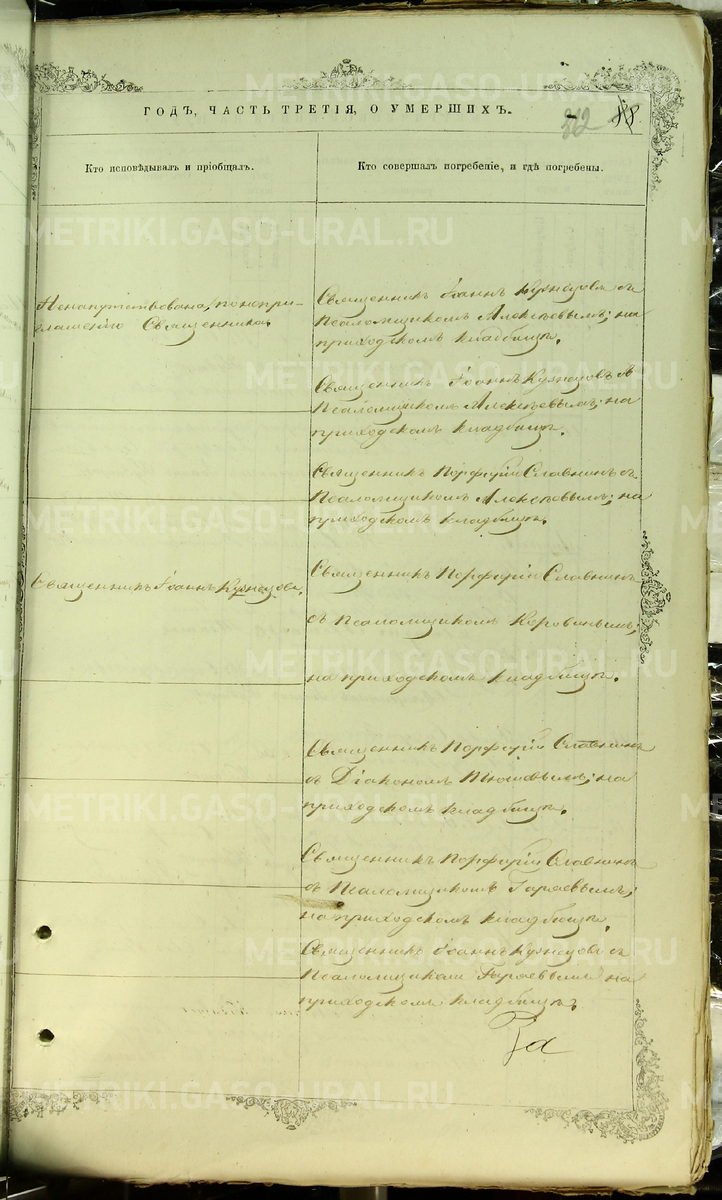 ГОДЪ, ЧАСТЬ ТРЕТІЯ, О УМЕРШИХЪ.
312
Кто исповѣдывалъ и пріобщалъ.
Кто совершалъ погребеніе, и гдѣ погребены.
Ненапутствована, по непри-
глашенію Священника.
Священникъ Іоаннъ Кузнецовъ съ
Псаломщикомъ Алексѣевымъ; на
приходскомъ кладбищѣ.
Священникъ Іоаннъ Кузнецовъ съ
Псаломщикомъ Алексѣевымъ; на
приходскомъ кладбищѣ.
Священникъ Порфирій Славнинъ съ
Псаломщикомъ Алексѣевымъ; на
приходскомъ кладбищѣ.
Священникъ Іоаннъ Кузнецовъ.
Священникъ Порфирій Славнинъ
съ Псаломщикомъ Коровинымъ;
на приходскомъ кладбищѣ.
Священникъ Порфирій Славнинъ
съ Діакономъ на
приходскомъ кладбищѣ.
Священникъ Порфирій Славнинъ
съ Псаломщикомъ Гаряевымъ;
на приходскомъ кладбищѣ.
Священникъ Іоаннъ Кузнецовъ съ
Псаломщикомъ Гаряевымъ на
приходскомъ кладбищѣ.
METRIKI.GASO-URAL.RU